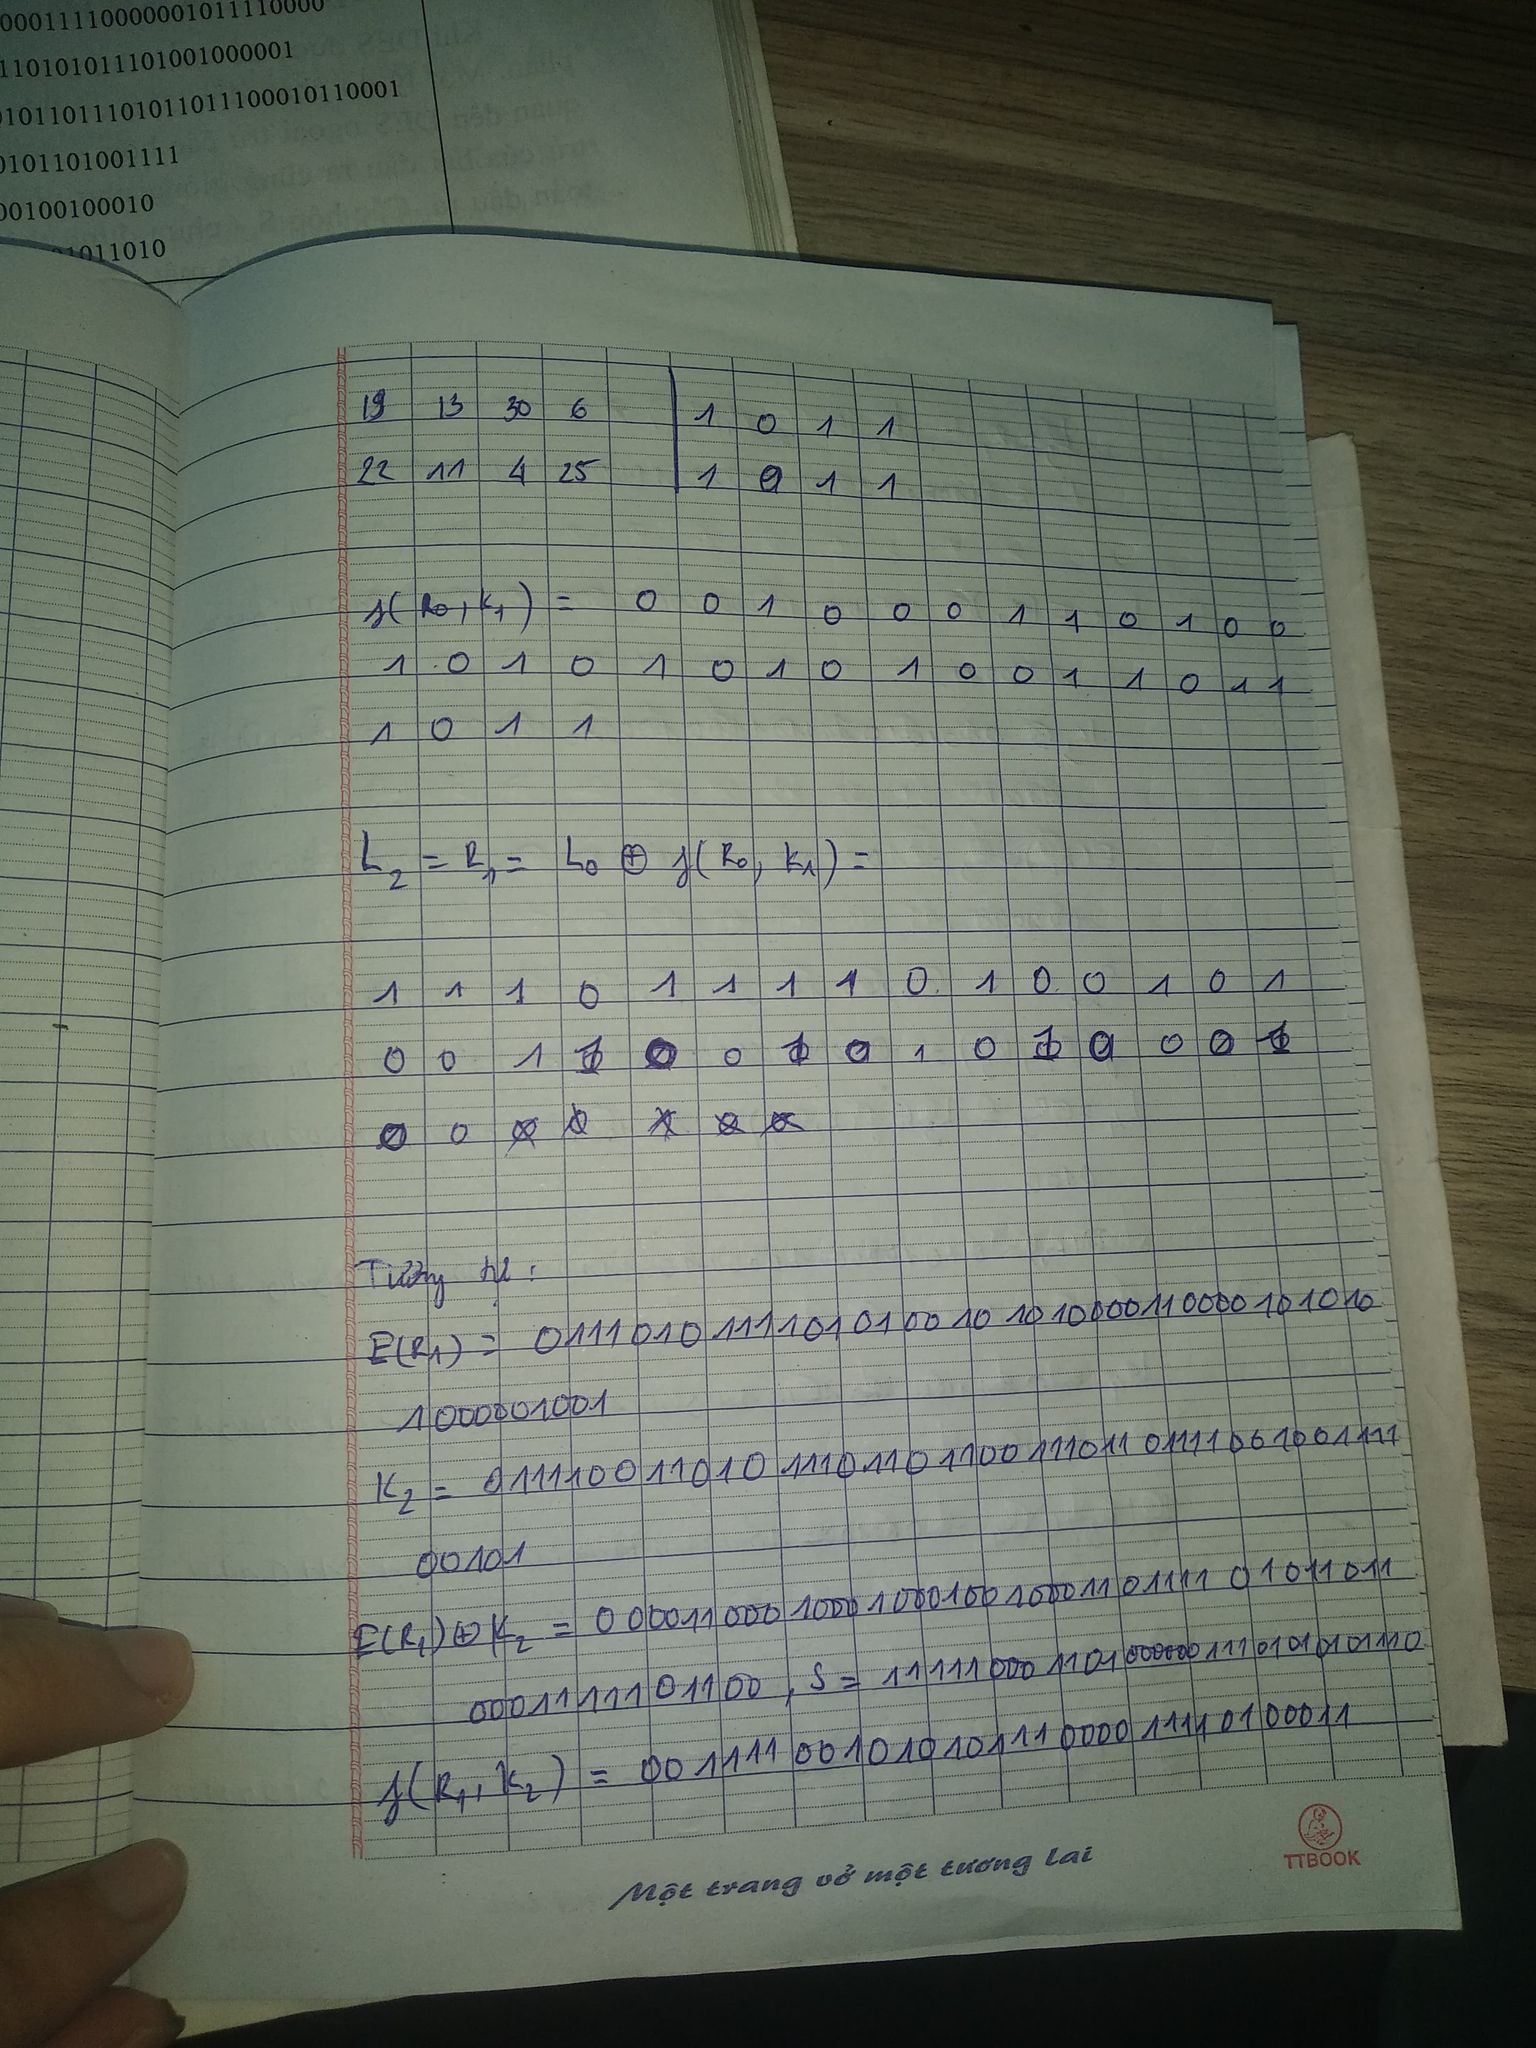 00011110000000101111 0000
11010101110100100 0001
0101101110101101110001 0110001
0101101001111
00100100010
01011010
19 13 30 6 1 0 1 1
22 11 4 25 1 0 1 1
f(R0, K1) = 0 0 1 0 0 0 1 1 0 1 0 0
1 0 1 0 1 0 1 0 1 0 0 1 1 0 1 1
1 0 1 1
L2 = R1 = L0 ⊕ f(R0, K1) =
1 1 1 0 1 1 1 1 0 1 0 0 1 0 1
0 0 1 1 0 0 1 0 1 0 1 0 0 0 1
0 0
Tương tự:
E(R1) = 01110101111010100101010000110000101010
1000001001
K2 = 0111100110101110110110011101101111001001111
00101
E(R1) ⊕ K2 = 00001100010001000100100011011110101 1011
0001111101100, S = 11111000110100000011101010101110
f(R1, K2) = 00111100101010111000011110100011
Một trang vở một tương lai
TTBOOK